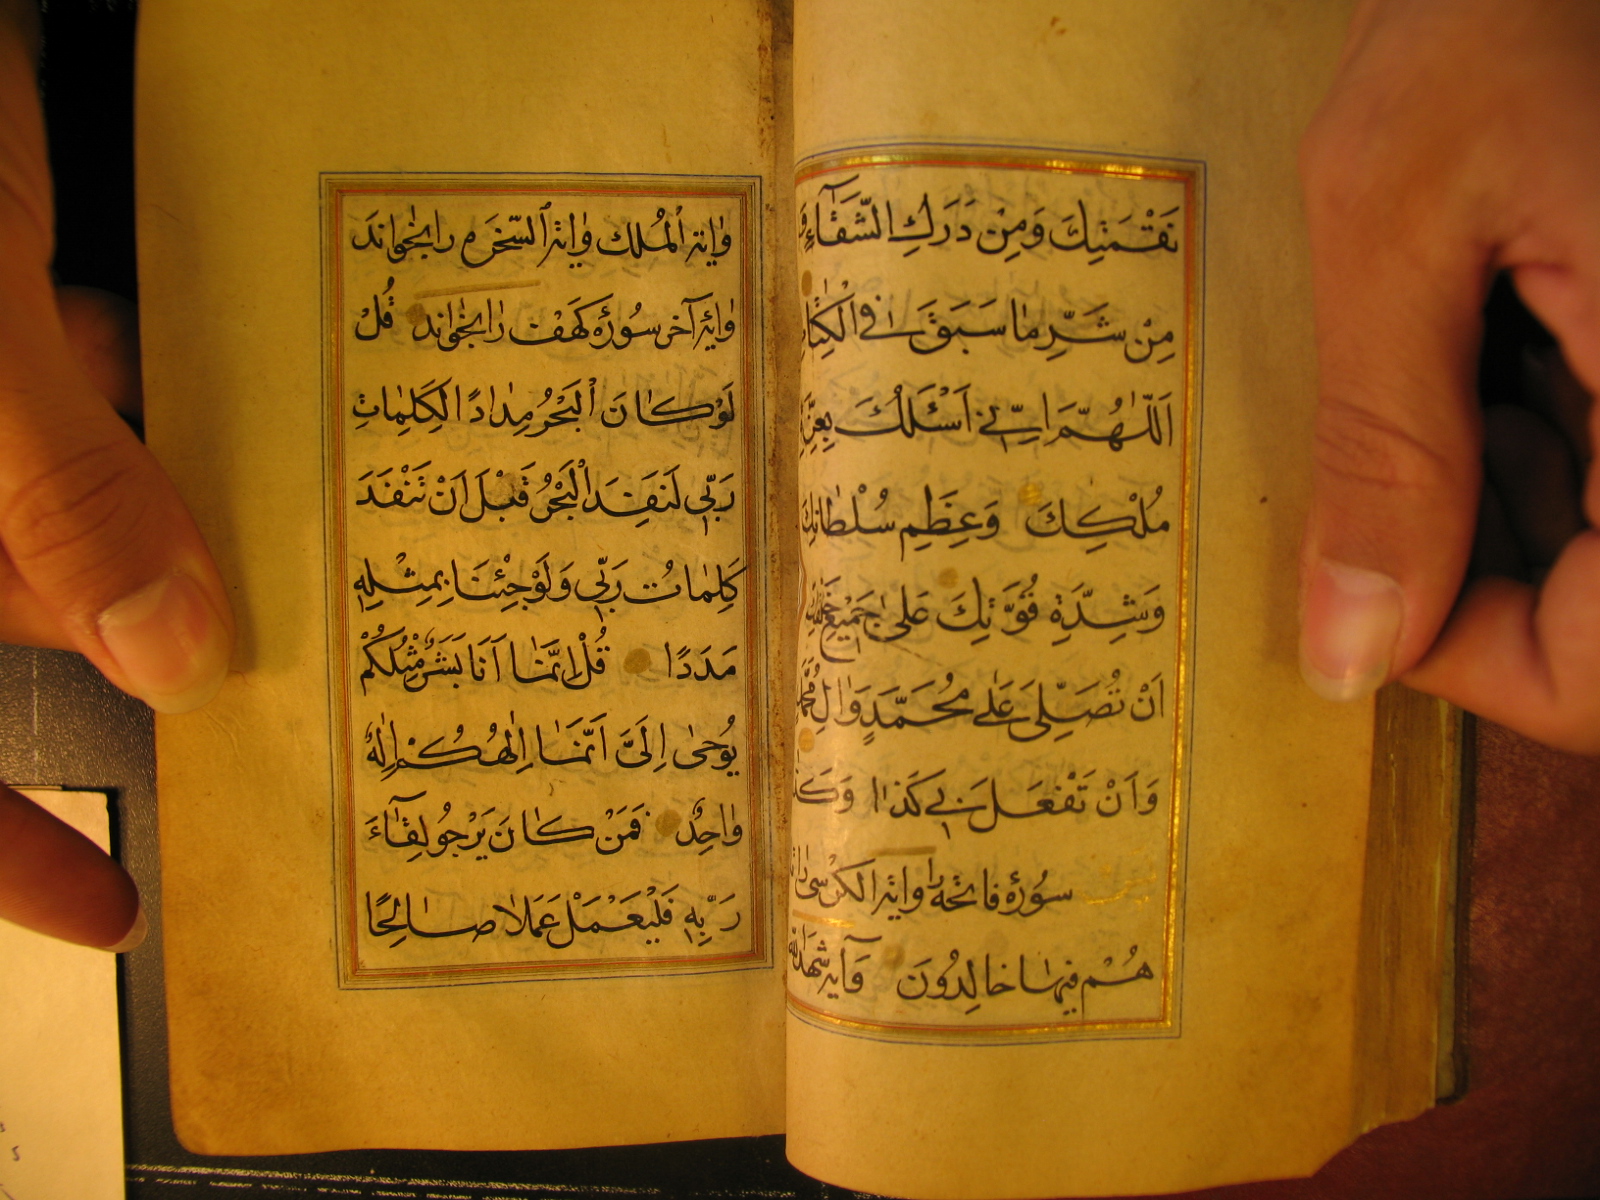 نَقْمَتِكَ وَمِنْ دَرَكِ الشَّقَآءِ
مِنْ شَرِّ مٰا سَبَقَ فِي الْكِتٰابِ
اَللّٰهُمَّ اِنّي اَسْئَلُكَ بِعِزَّةِ
مُلْكِكَ وَعِظَمِ سُلْطٰانِكَ
وَشِدَّةِ قُوَّتِكَ عَلىٰ جَميعِ خَلْقِكَ
اَنْ تُصَلِّىَ عَلٰى مُحَمَّدٍ وَاٰلِ مُحَمَّدٍ
وَاَنْ تَفْعَلَ بي كَذٰا وَكَذٰا
سُورَۀ فاتحه را واية الكرسى را تا
هُمْ فيهٰا خالِدُونَ وَآية شَهِدَ اللّٰهُ
وٰاية الْمُلك وٰاية السّخرَه را بخواند
وٰايۀ آخر سُورَۀ كَهَفْ رٰا بخٰواند قُلْ
لَوْ كٰانَ الْبَحْرُ مِدٰادًا لِكَلِمٰاتِ
رَبّي لَنَفِدَ الْبَحْرُ قَبْلَ اَنْ تَنْفَدَ
كَلِمٰاتُ رَبّي وَلَوْ جِئْنٰا بِمِثْلِهِ
مَدَدًا قُلْ اِنَّمٰا اَنَا بَشَرٌ مِثْلُكُمْ
يُوحىٰ اِلَىَّ اَنَّمٰا اِلٰهُكُمْ اِلٰهٌ
وٰاحِدٌ فَمَنْ كٰانَ يَرْجُو لِقٰآءَ
رَبِّهِ فَلْيَعْمَلْ عَمَلاً صٰالِحًا